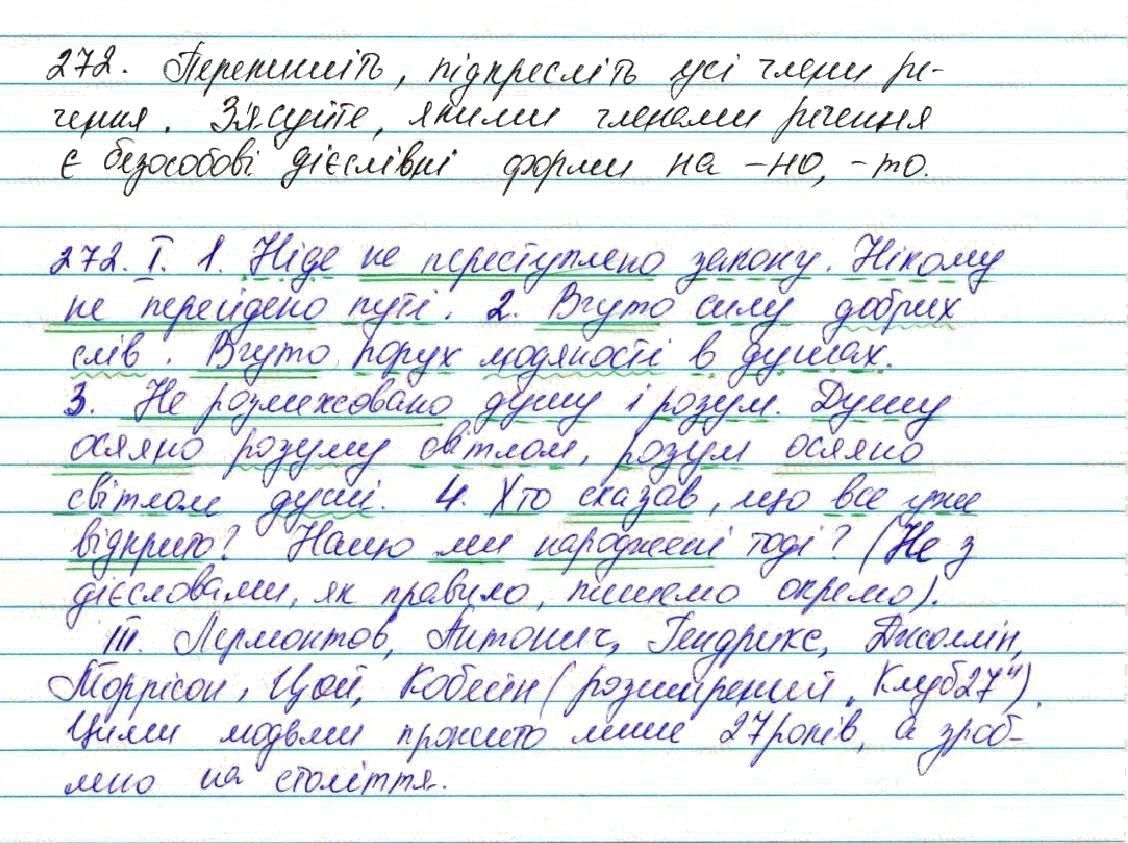 272. Перепишіть, підкресліть усі члени ре-
чення. З'ясуйте, якими членами речення
є безособові дієслівні форми на -но, -то.
272. І. 1. Ніде не переступлено закону. Нікому
не перейдено путі. 2. Вчуто силу добрих
слів. Вчуто порух людяності в душах.
3. Не розмежовано душу і розум. Душу
осяяно розуму світлом, розум осяяно
світлом душі. 4. Хто сказав, що все уже
відкрито? Нащо ми народжені тоді? (Не з
дієсловами, як правило, пишемо окремо).
ІІІ. Лермонтов, Антонич, Гендрикс, Джоплін,
Моррісон, Цой, Кобейн (розширений „Клуб 27").
Цими людьми прожито лише 27 років, а зроб-
лено на століття.